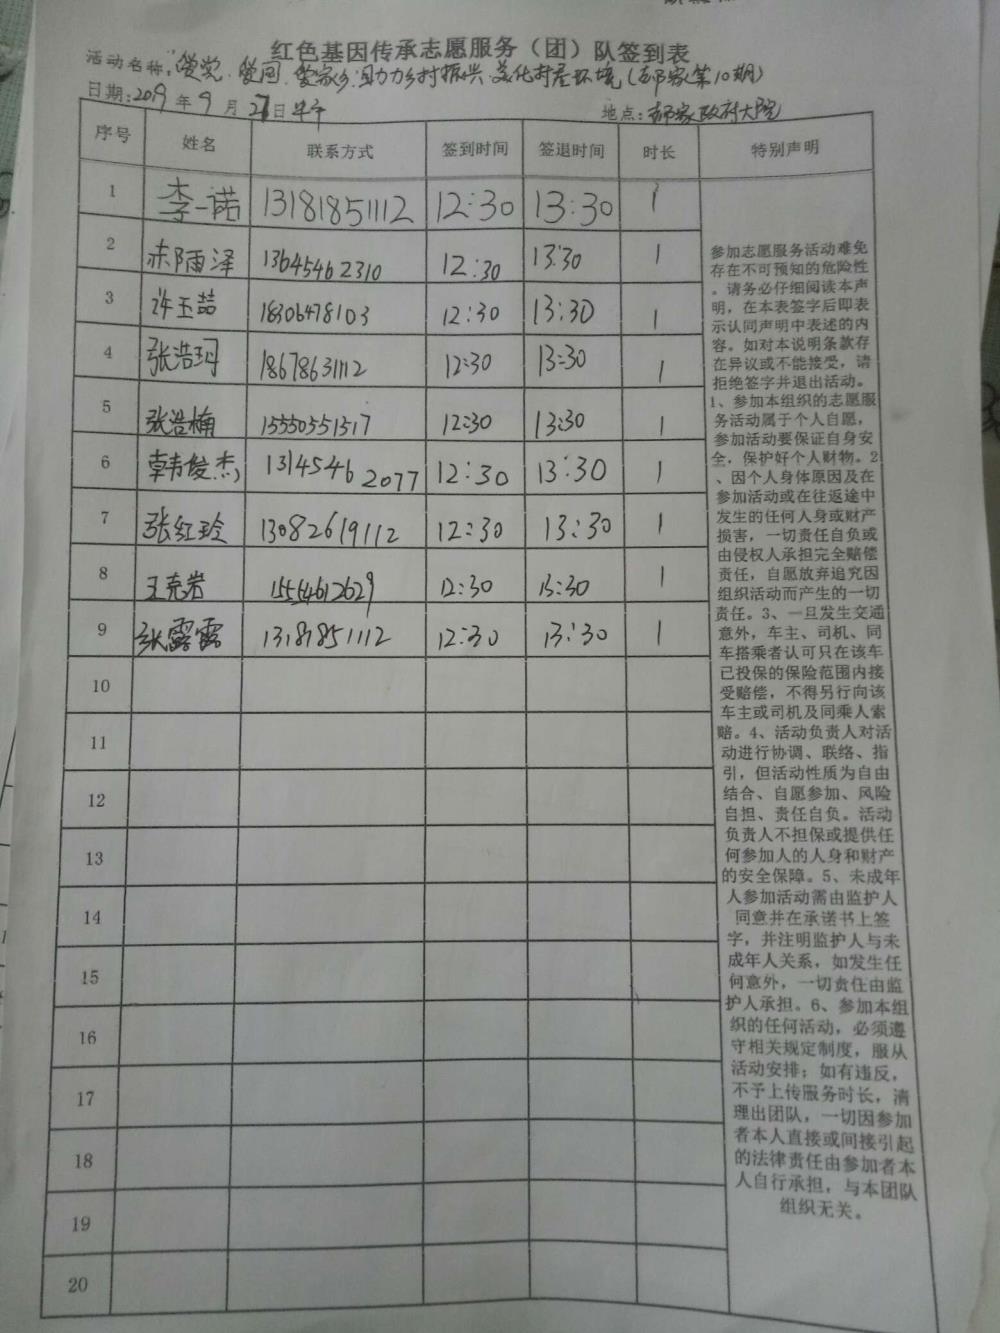 红色基因传承志愿服务（团）队签到表
活动名称：爱党、爱国、爱家乡，助力乡村振兴 美化村居环境（邹家第10期）
日期：2019年9月27日
地点：邹家政府大院
序号 姓名 联系方式 签到时间 签退时间 时长 特别声明
1 李一诺 13181851112 12:30 13:30 1
2 泽 13645462310 12:30 13:30 1
3 许玉喆 18306478103 12:30 13:30 1
4 张浩珂 18678631112 12:30 13:30 1
5 张浩楠 15550551517 12:30 13:30 1
6 韩俊杰 13145462077 12:30 13:30 1
7 张红玲 13082619112 12:30 13:30 1
8 王克岩 15554612629 12:30 13:30 1
9 张露露 13181851112 12:30 13:30 1
10
11
12
13
14
15
16
17
18
19
20
参加志愿服务活动难免
存在不可预知的危险性
。请务必仔细阅读本声
明，在本表签字后即表
示认同声明中表述的内
容。如对本说明条款存
在异议或不能接受，请
拒绝签字并退出活动。
1、参加本组织的志愿服
务活动属于个人自愿，
参加活动要保证自身安
全，保护好个人财物。2
、因个人身体原因及在
参加活动或在往返途中
发生的任何人身或财产
损害，一切责任自负或
由侵权人承担完全赔偿
责任，自愿放弃追究因
组织活动而产生的一切
责任。3、一旦发生交通
意外，车主、司机、同
车搭乘者认可只在该车
已投保的保险范围内接
受赔偿，不得另行向该
车主或司机及同乘人索
赔。4、活动负责人对活
动进行协调、联络、指
引，但活动性质为自由
结合、自愿参加、风险
自担、责任自负。活动
负责人不担保或提供任
何参加人的人身和财产
的安全保障。5、未成年
人参加活动需由监护人
同意并在承诺书上签
字，并注明监护人与未
成年人关系，如发生任
何意外，一切责任由监
护人承担。6、参加本组
织的任何活动，必须遵
守相关规定制度，服从
活动安排；如有违反，
不予上传服务时长，清
理出团队，一切因参加
者本人直接或间接引起
的法律责任由参加者本
人自行承担，与本团队
组织无关。